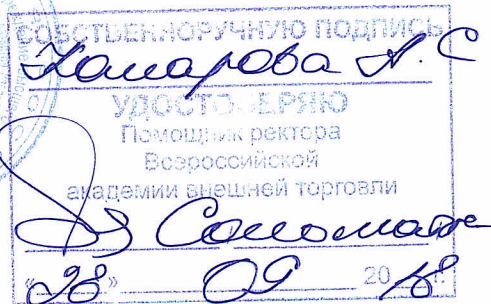 СОБСТВЕННОРУЧНУЮ ПОДПИСЬ
Комарова А. С
УДОСТОВЕРЯЮ
Помощник ректора
Всероссийской
академии внешней торговли
« 28 » 09 20 18 г.